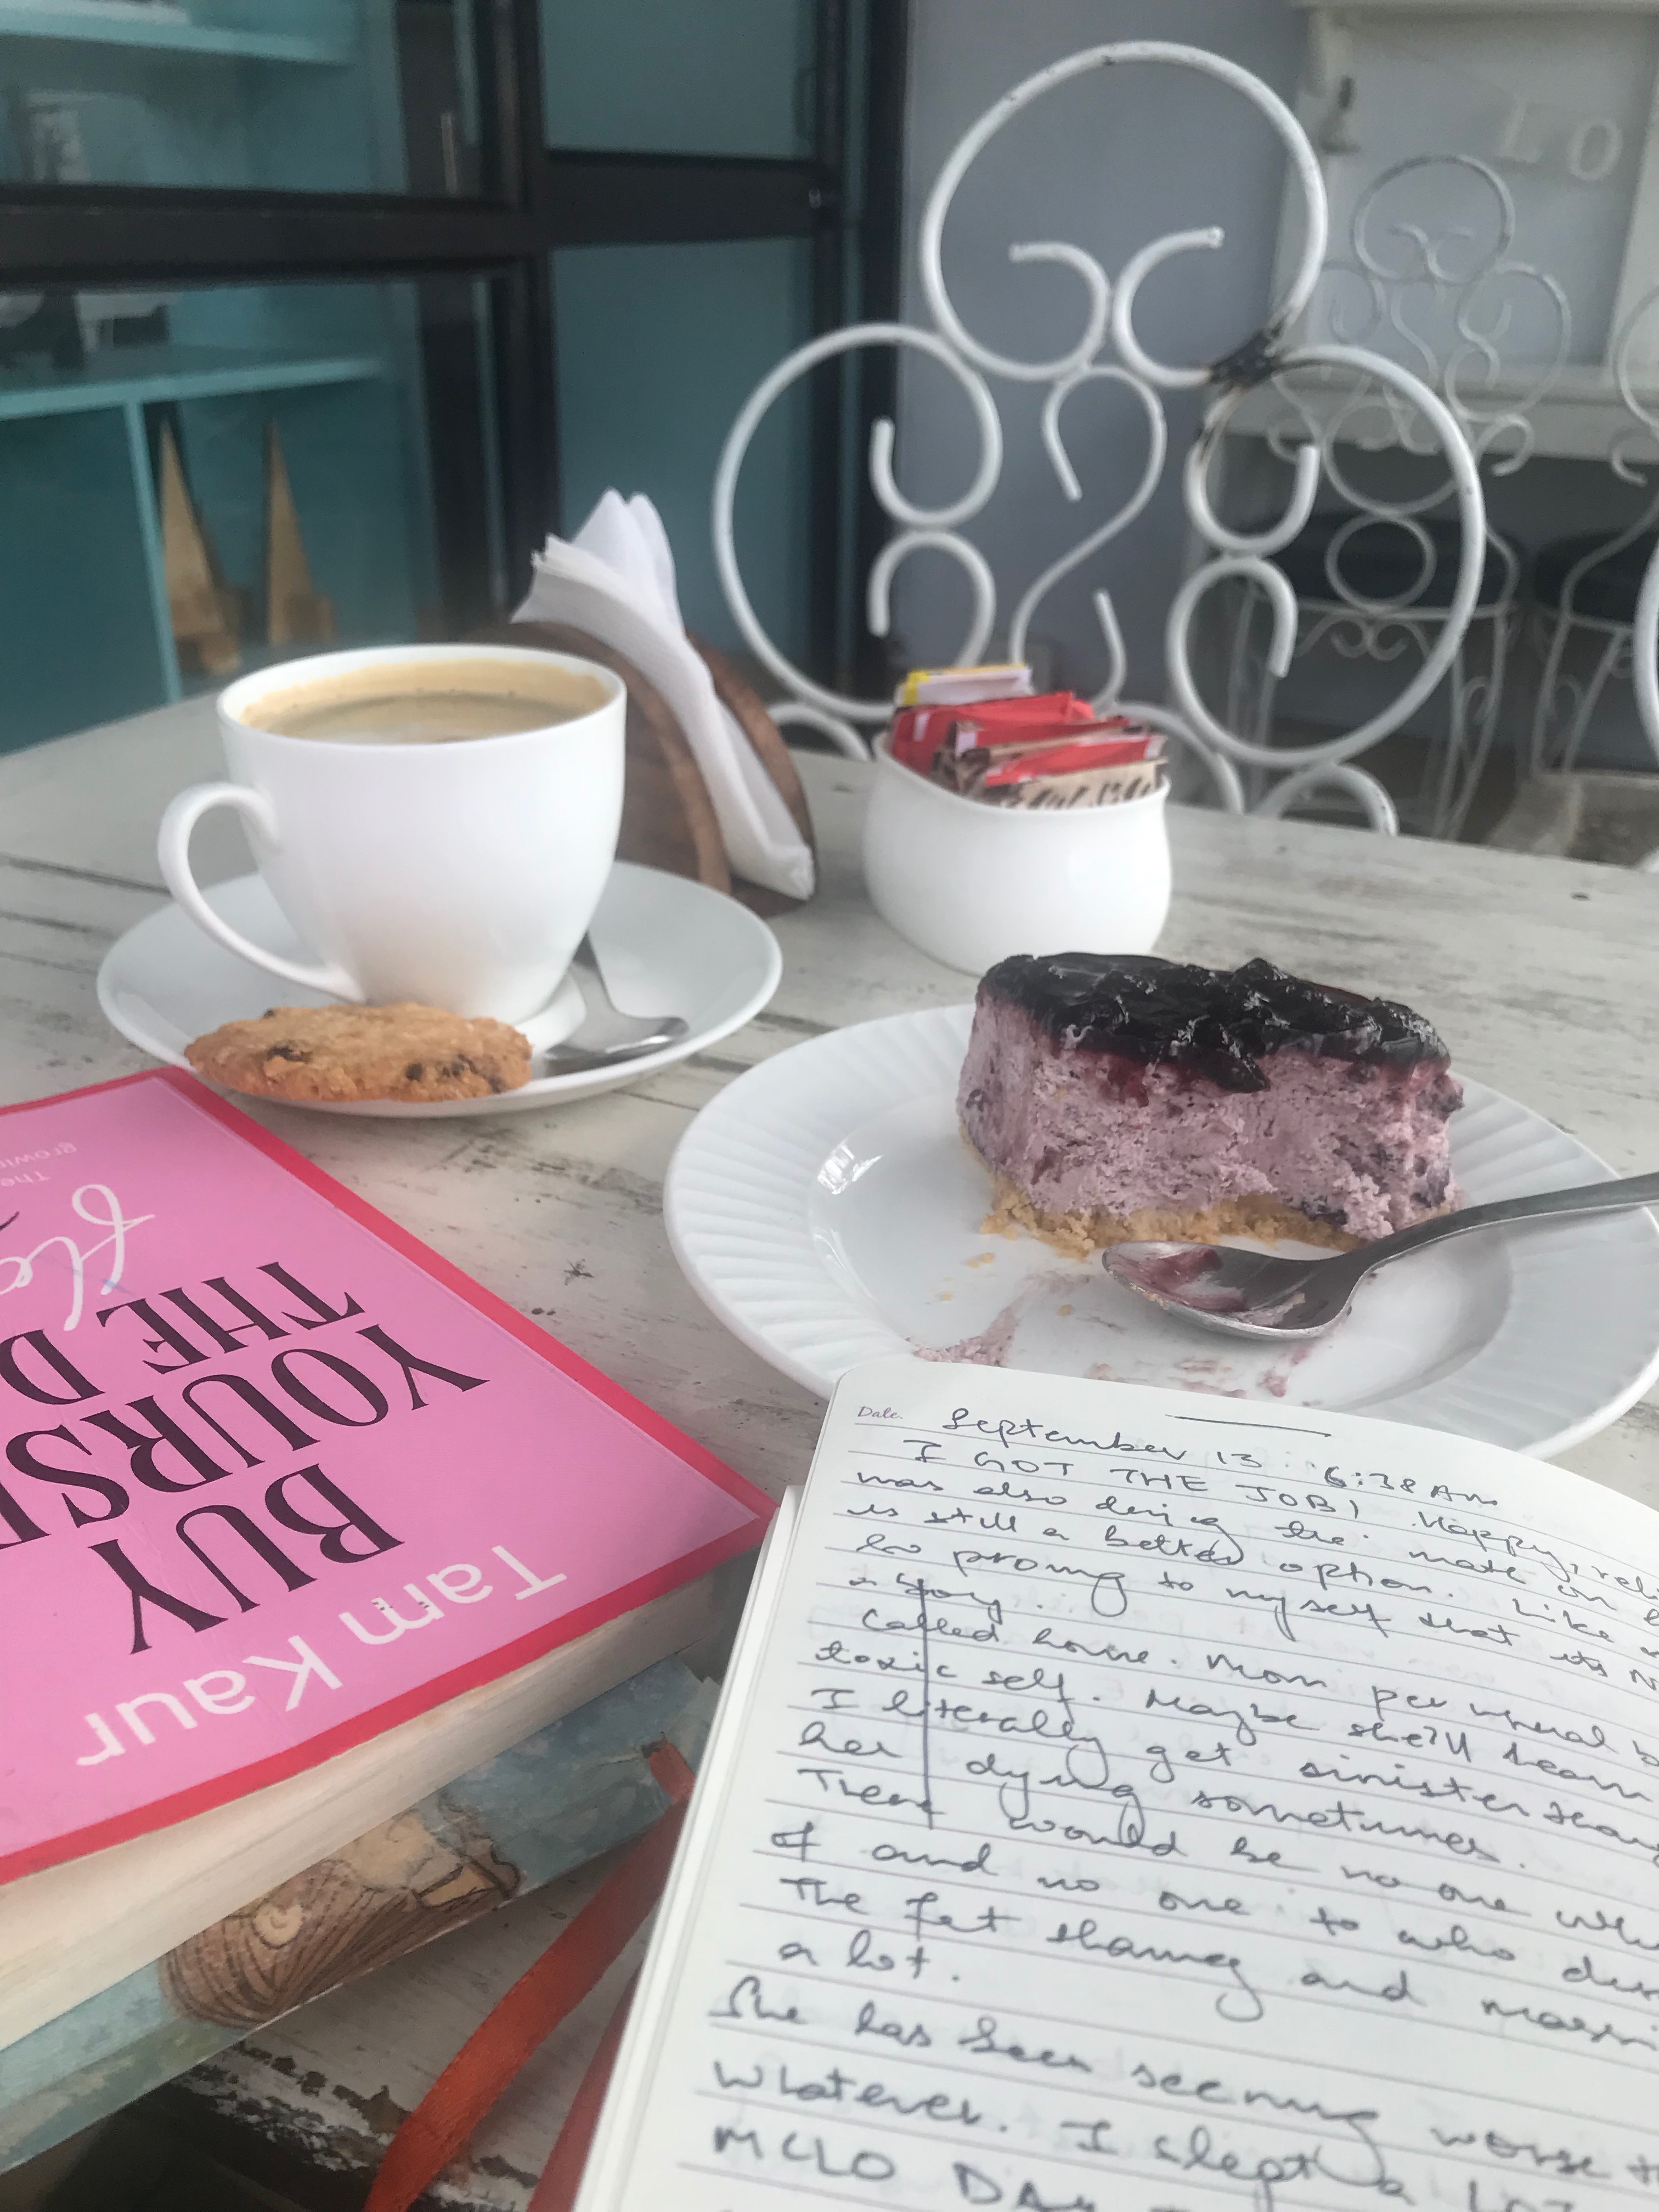 L O
The
growi
flo
THE D
YOURSE
BUY
Tam Kaur
Date.
September 13 6:38 Am
I GOT THE JOB! Happy, reli
was also doing the math on
is still a better option. Like
to promg to myself that its
a
Called home. Mom per usual b
toxic self. Maybe she'll learn
I literally get sinister
her dying sometimes.
There would be no one
of and no one to who
The fat shaming and
a lot.
She has been seeming worse
whatever. I slept a
MCLO DAY